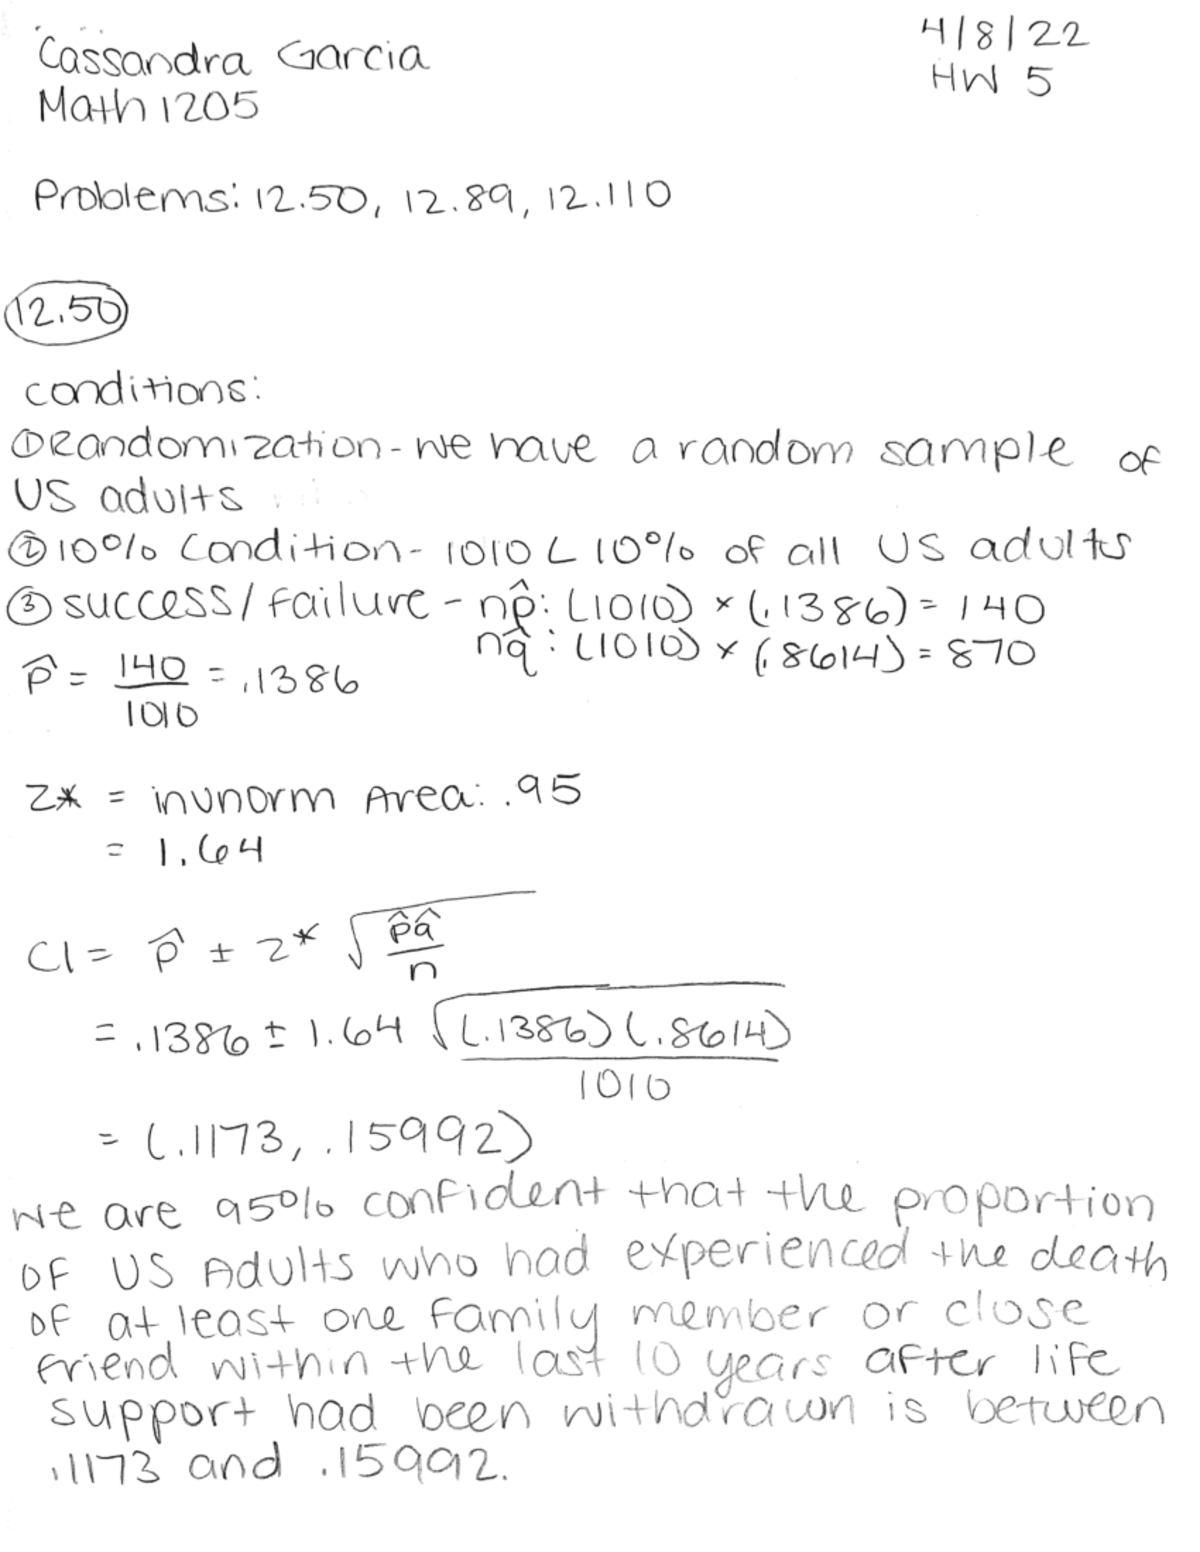 Cassandra Garcia
4/8/22
Math 1205
HW 5
Problems: 12.50, 12.89, 12.110
12.50
conditions:
① Randomization - we have a random sample of
US adults
② 10% Condition - 1010 < 10% of all US adults
③ success/failure - np̂: (1010) × (.1386) = 140
nq̂: (1010) × (.8614) = 870
p̂ = 140/1010 = .1386
z* = invnorm Area: .95
= 1.64
CI = p̂ ± z* √(p̂q̂/n)
= .1386 ± 1.64 √((.1386)(.8614)/1010)
= (.1173, .15992)
We are 95% confident that the proportion
of US Adults who had experienced the death
of at least one family member or close
friend within the last 10 years after life
support had been withdrawn is between
.1173 and .15992.